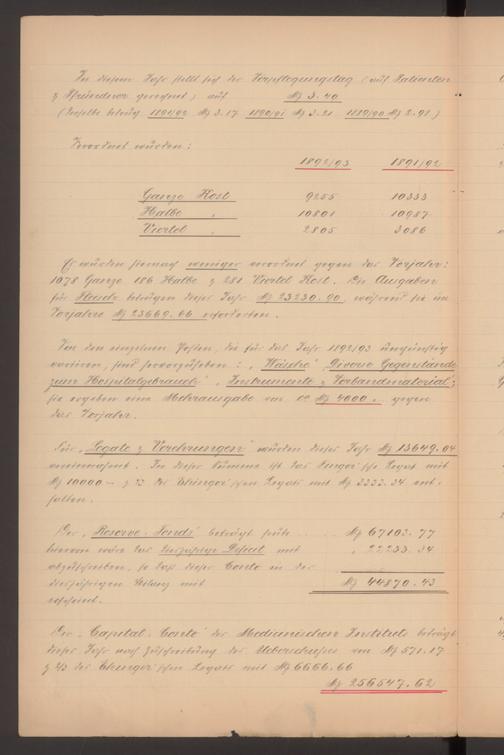 In diesem Jahr stellt sich der Verpflegungstag (auf Patienten
& Pfründner gerechnet) auf M 3.40
(derselbe betrug 1891/92 M 3.17 1890/91 M 3.21 1889/90 M 2.91)
Verordnet wurden:
1892/93 1891/92
Ganze Kost 9255 10333
Halbe " 10801 10987
Viertel " 2805 3086
Es wurden hiernach weniger verordnet gegen das Vorjahr:
1078 Ganze 186 Halbe & 281 Viertel Kost. Die Ausgaben
für betrugen dieses Jahr M 23230.90, während sie im
Vorjahre M 23669.66 erforderten.
Von den einzelnen Posten, die für das Jahr 1892/93 ungünstig
sind hervorzuheben: "Wäsche" "Diverse Gegenstände
zum Hospitalgebrauch", "Instrumente & Verbandmaterial";
sie ergeben eine Mehrausgabe von ca M 4000. gegen
das Vorjahr.
Für "Legate & Verehrungen" wurden dieses Jahr M 13649.04
vereinnahmt. In dieser Summe ist das Legat mit
M 10000 – & ⅓ des Legats mit M 3333.34 ent-
halten.
Der "Reserve-Fonds" beträgt heute M 67103.77
hiervon wäre das diesjährige Deficit mit " 22233.34
abzuschreiben, so daß dieser Conto in der
diesjährigen Bilanz mit M 44870.43
erscheint.
Der "Capital-Conto" des Medianischen Instituts beträgt
dieses Jahr nach Zuschreibung des Ueberschusses von M 571.17
& ⅔ des Legats mit M 6666.66
M 256547.62